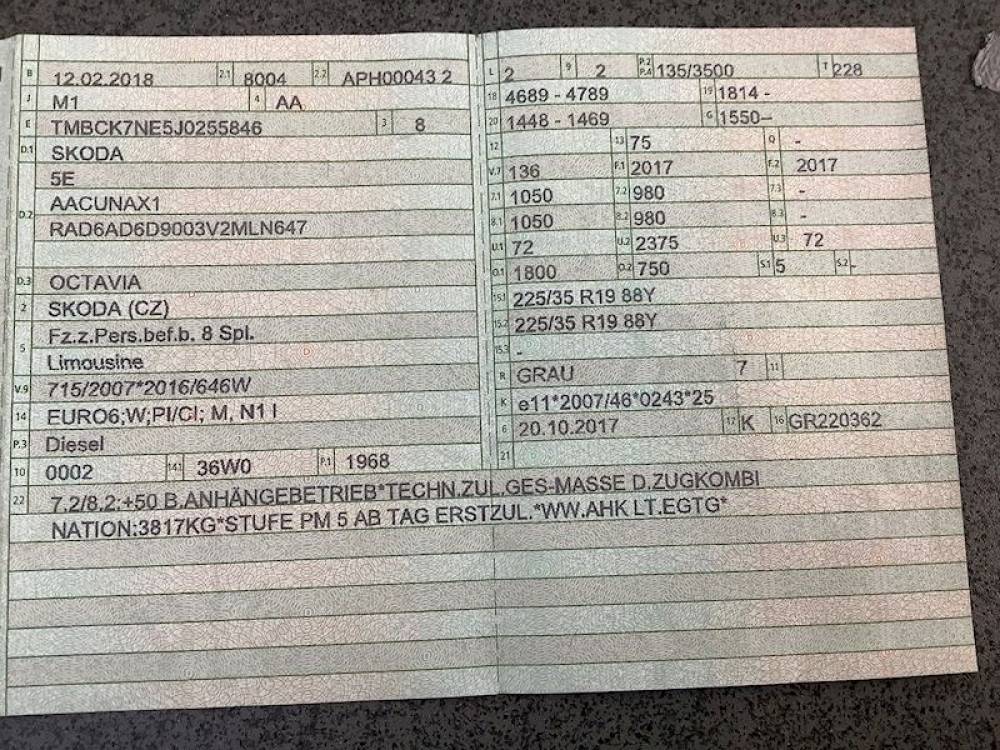 B 12.02.2018 2.1 8004 2.2 APH00043 2
J M1 4 AA
E TMBCK7NE5J0255846 3 8
D.1 SKODA
5E
D.2 AACUNAX1
RAD6AD6D9003V2MLN647
D.3 OCTAVIA
2 SKODA (CZ)
5 Fz.z.Pers.bef.b. 8 Spl.
Limousine
V.9 715/2007*2016/646W
14 EURO6;W;PI/CI; M, N1 I
P.3 Diesel
10 0002 14.1 36W0 P.1 1968
L 2 9 2 P.2 P.4 135/3500 T 228
18 4689 - 4789 19 1814 -
20 1448 - 1469 G 1550–
12 13 75 Q -
V.7 136 F.1 2017 F.2 2017
7.1 1050 7.2 980 7.3 -
8.1 1050 8.2 980 8.3 -
U.1 72 U.2 2375 U.3 72
O.1 1800 O.2 750 S.1 5 S.2 -
15.1 225/35 R19 88Y
15.2 225/35 R19 88Y
15.3 -
R GRAU 7 11
K e11*2007/46*0243*25
6 20.10.2017 17 K 16 GR220362
21
22 7.2/8.2:+50 B.ANHÄNGEBETRIEB*TECHN.ZUL.GES-MASSE D.ZUGKOMBI
NATION:3817KG*STUFE PM 5 AB TAG ERSTZUL.*WW.AHK LT.EGTG*